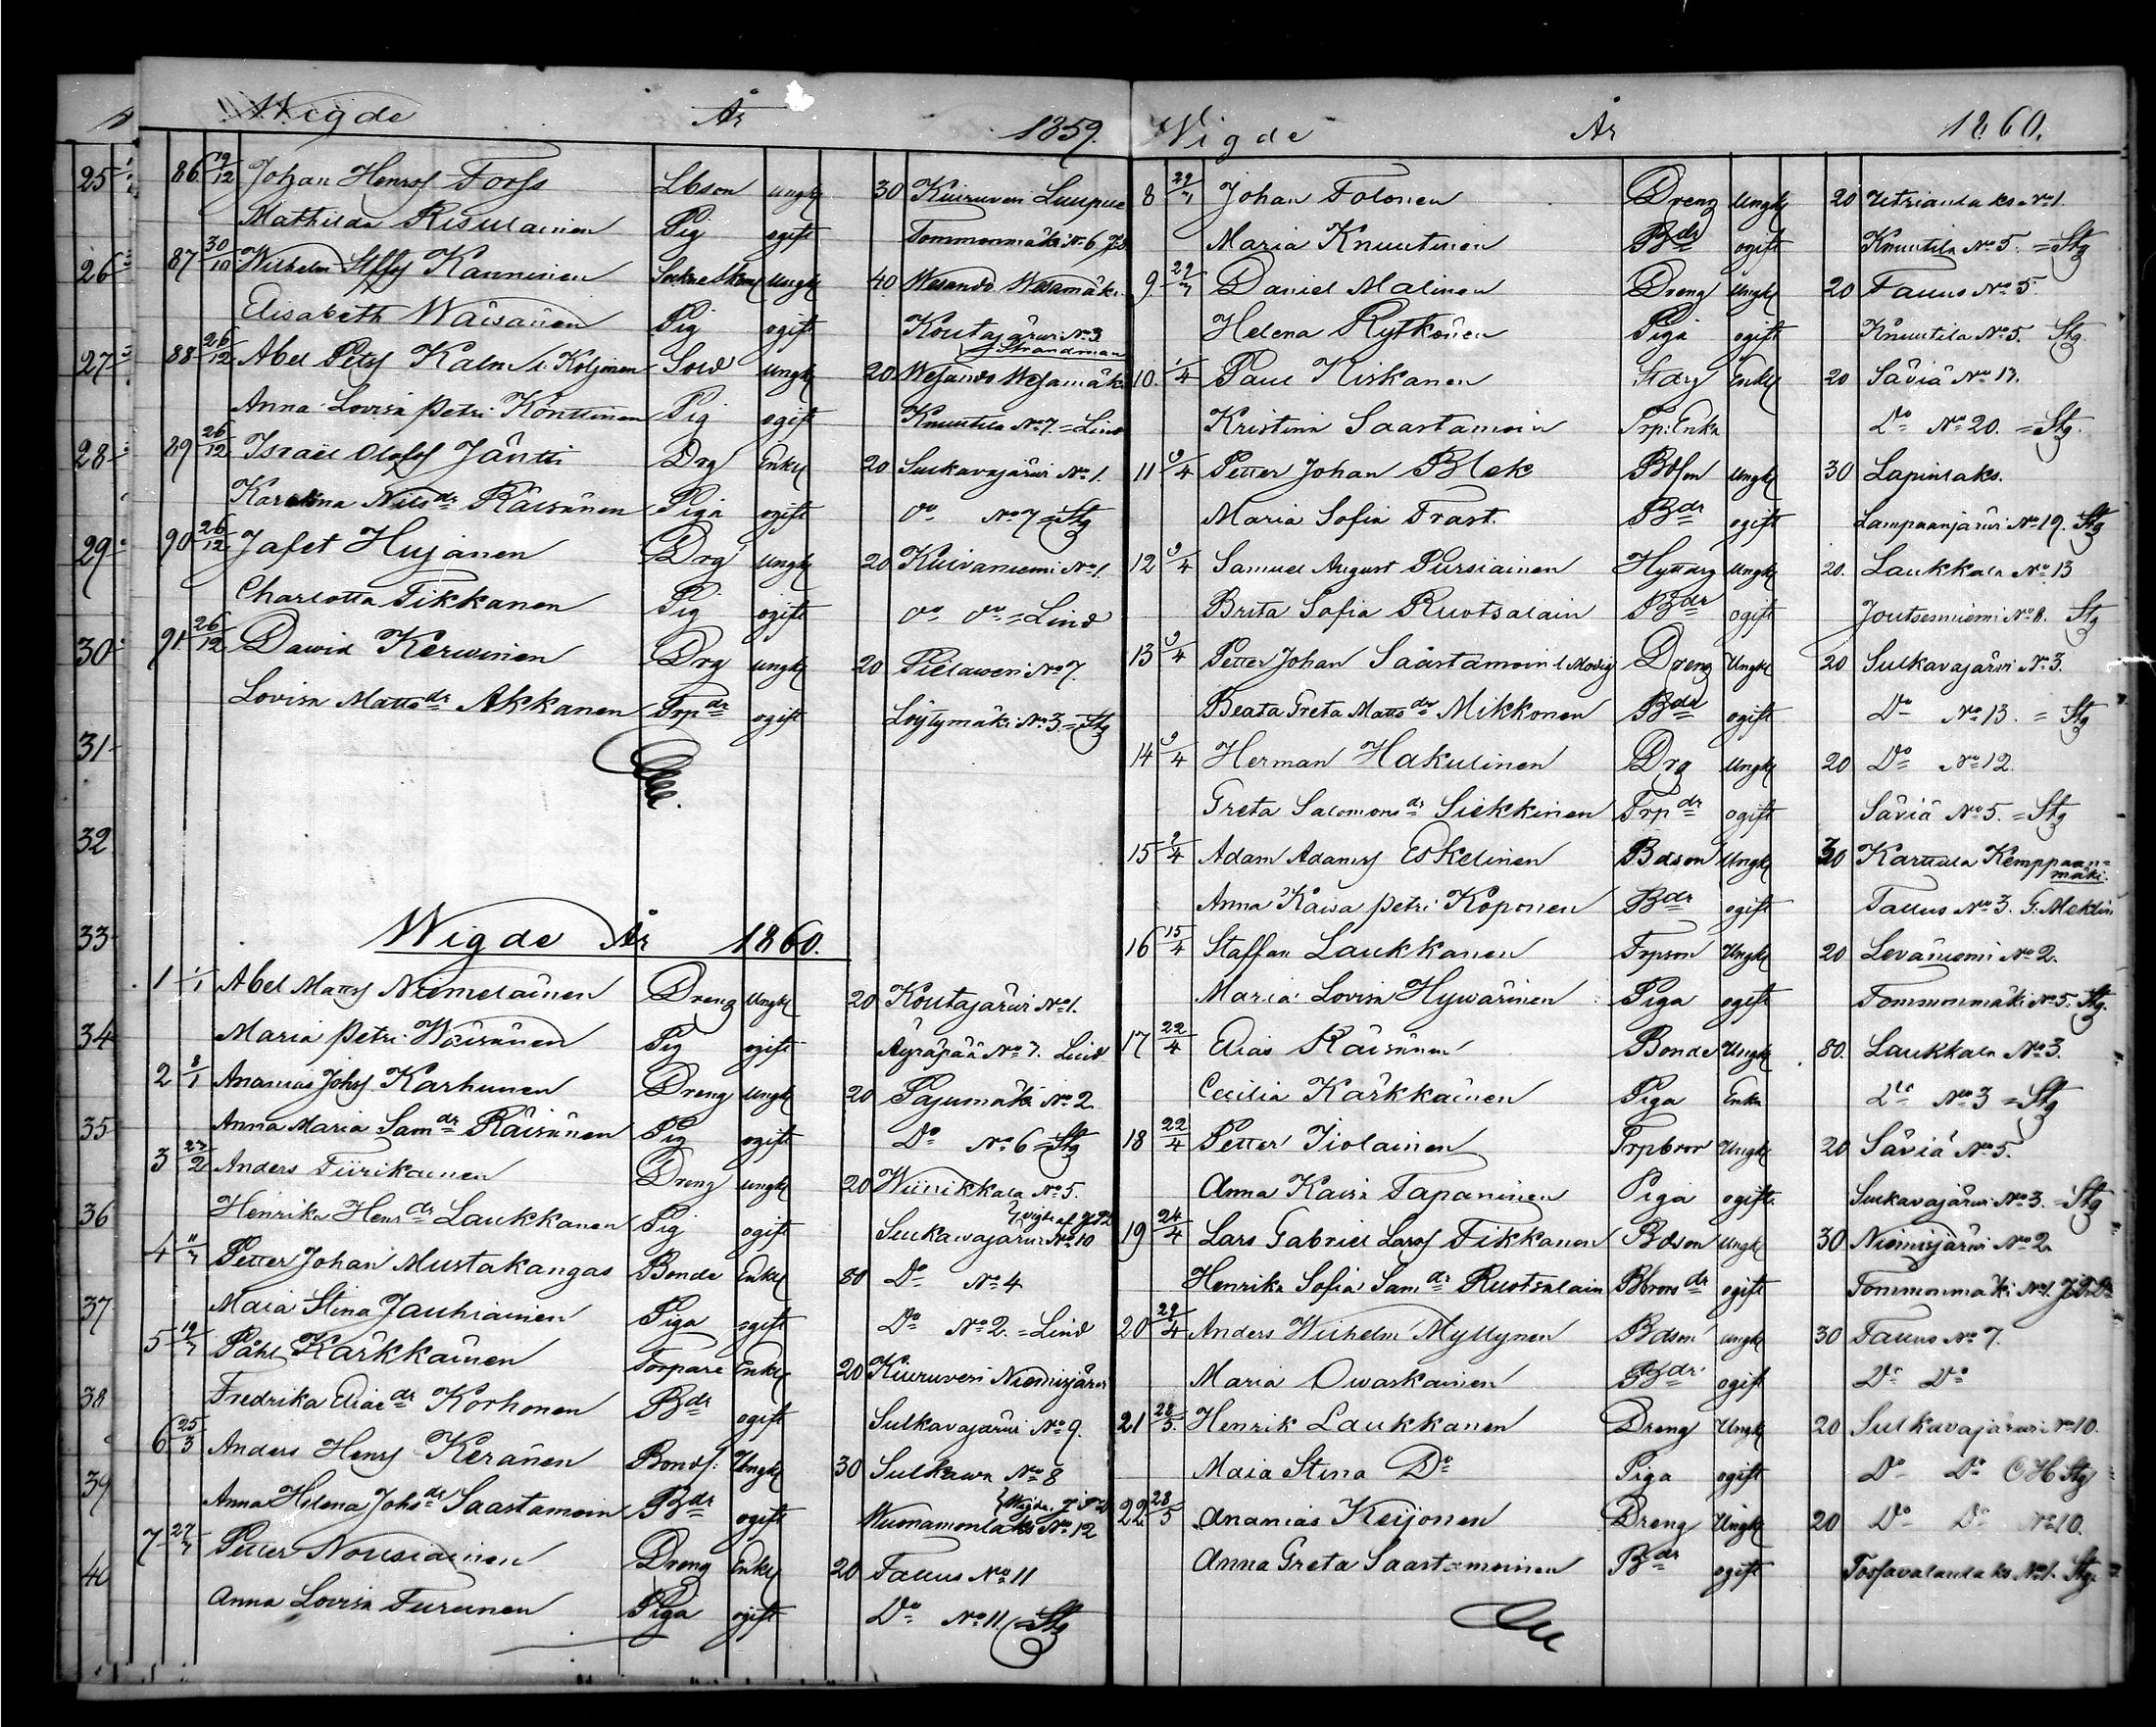 Wigde År 1859.
86 19/12 Johan Henrss Forss Lbson ungk 30 Kiuruvesi Luupue
Mathilda Risulainen Pig ogift Tommonmäki N:o 6
87 30/10 Wilhelm Staffss Kanninen ungk 40 Wesando Wesamäki
Elisabeth Wäisänen Pig ogift Koutajärwi N:o 3
Strandman
88 26/12 Abel Petss Kalm l. Koljonen Sold ungk 20 Wesando Wesamäki
Anna Lovisa Petri Könttinen Pig ogift Knuutila N:o 7. = Lind
89 26/12 Israel Olofss Jäntti Drg Enkl 20 Sulkavajärwi N:o 1.
Karolina Nilsdr Räisänen Piga ogift Do N:o 7 = Stg
90 26/12 Jafet Hujanen Drg ungk 20 Kuivaniemi N:o 1.
Charlotta Tikkanen Pig ogift Do Do = Lind
91 26/12 Dawid Kerwinen Drg ungk 20 Pielawesi N:o 7.
Lovisa Mattsdr Akkanen Trpdr ogift Löytymäki N:o 3 = Stg
Wigde År 1860.
1 1/1 Abel Mattss Niemeläinen Dreng Ungk 20 Koutajärwi N:o 1.
Maria Petri Wäisänen Pig ogift Äyräpää N:o 7. Lind
2 8/1 Ananias Johss Karhunen Dreng ungk 20 Pajumäki N:o 2
Anna Maria Samdr Räisänen Pig ogift Do N:o 6 = Stg
3 27/2 Anders Tiirikainen Dreng ungk 20 Wiinikkala N:o 5.
Henrika Henrdr Laukkanen Pig ogift Sulkawajärwi N:o 10
4 11/3 Petter Johan Mustakangas Bonde Enkl 80 Do N:o 4
Maia Stina Jauhiainen Piga ogift Do N:o 2. = Lind
5 19/3 Påhl Kärkkäinen Torpare Enkl 20 Kiuruvesi Niemisjärwi
Fredrika Eliaedr Korhonen Bdr ogift Sulkavajärwi N:o 9.
6 25/3 Anders Henrss Keränen Bonds. Ungk 30 Sulkawa N:o 8
Anna Helena Johsdr Saastamoin Bdr ogift Wuonamonlaks N:o 12
7 27/3 Petter Nousiainen Dreng Enkl 20 Tallus N:o 11
Anna Lovisa Turunen Piga ogift Do N:o 11. = Stg
Wigde År 1860.
8 29/3 Johan Tolonen Dreng Ungk 20 Utrianlaks N:o 1.
Maria Knuutinen Bdr ogift Knuutila N:o 5. = Stg
9. 29/3 Daniel Malinen Dreng Ungk 20 Tallus N:o 5.
Helena Rytkönen Piga ogift Knuutila N:o 5. Stg
10. 1/4 Paul Kiskanen Enkl 20 Säviä N:o 13.
Kristina Saastamoin Trp: Enka Do N:o 20. = Stg.
11 9/4 Petter Johan Blek Bdsn ungk 30 Lapinlaks.
Maria Sofia Trast. Bdr ogift Lampaanjärwi N:o 19. Stg
12 9/4 Samuel August Pursiainen Hyttdrg Ungk 20. Laukkala N:o 13
Brita Sofia Ruotsalain Bdr ogift Joutsenniemi N:o 8. Stg
13 9/4 Petter Johan Saastamoin l Modig Dreng Ungk 20 Sulkavajärwi N:o 3.
Beata Greta Mattsdr Mikkonen Bdr ogift Do N:o 13. = Stg
14 9/4 Herman Hakulinen Drg ungk 20 Do N:o 12.
Greta Salomonsdr Siekkinen Trpdr ogift Säviä N:o 5. = Stg
15 9/4 Adam Adamss Eskelinen Bdson Ungk 30 Karttula Kemppaan=
mäki.
Anna Kaisa Petri Koponen Bdr ogift Tallus N:o 3. G. Meklin
16 15/4 Staffan Laukkanen Trpson Ungk 20 Leväniemi N:o 2.
Maria Lovisa Hywärinen Piga ogift Tommonmäki N:o 5. Stg.
17 22/4 Elias Räisänen Bonde Ungk 80. Laukkala N:o 3.
Cecilia Kärkkäinen Piga Enka Do N:o 3 = Stg
18 22/4 Petter Tiolainen Trpbror Ungk 20 Säviä N:o 5.
Anna Kaisa Tapaninen Piga ogift. Sulkavajärwi N:o 3. = Stg
19 24/4 Lars Gabriel Larss Tikkanen Bdson ungk 30 Niemisjärwi N:o 2
Henrika Sofia Samdr Ruotsalain Bbrorsdr ogift Tommonmäki N:o 1.
20 29/4 Anders Wilhelm Myllynen Bdson ungk 30 Tallus N:o 7.
Maria Owaskainen Bdr ogift Do Do
21 28/5. Henrik Laukkanen Dreng Ungk 20 Sulkavajärwi N:o 10.
Maia Stina Do Piga ogift Do Do C H Stg
22. 28/5 Ananias Keijonen Dreng Ungk 20 Do Do N:o 10.
Anna Greta Saastamoinen Bdr ogift Tossavalanlaks N:o 1. Stg.
25
26
27
28
29
30
31
32
33
34
35
36
37
38
39
40